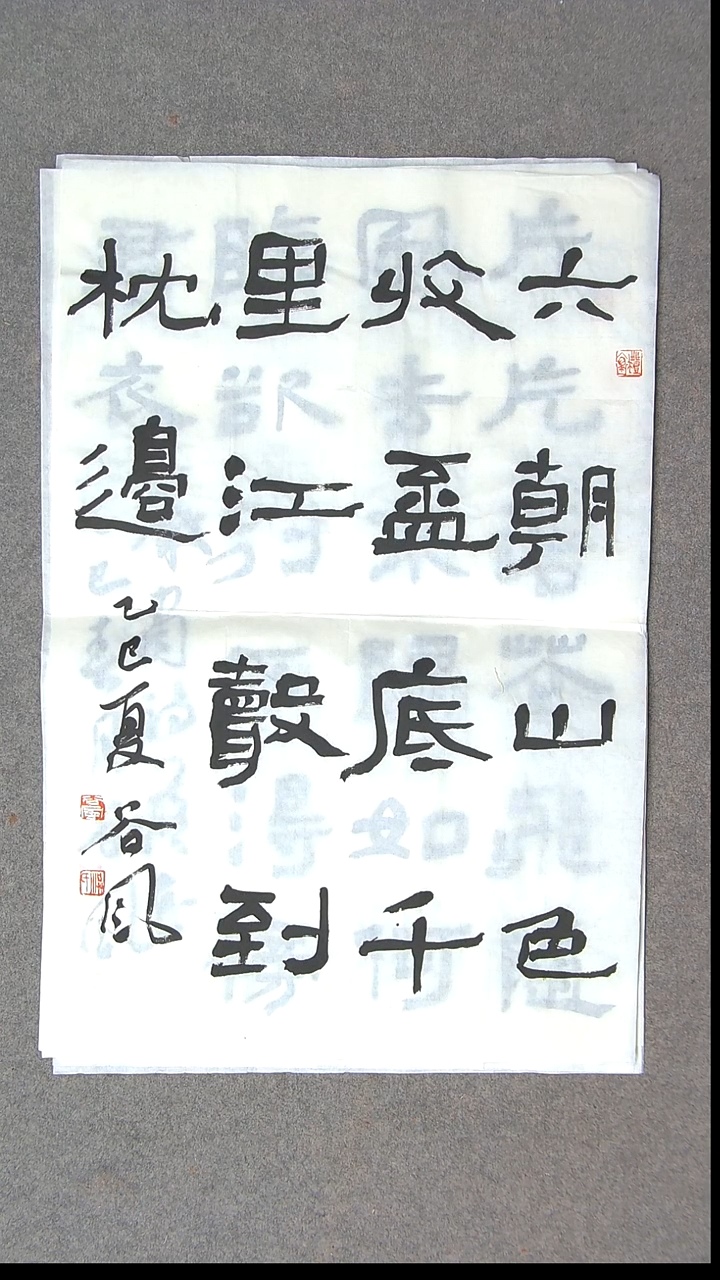 六朝山色
收盃底千
里江聲到
枕邊 乙巳夏 谷風